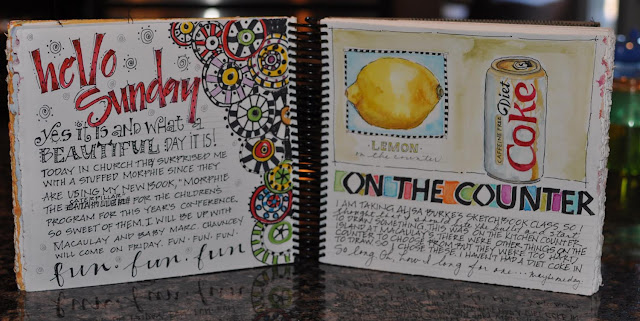 hello
Sunday
Yes it is and what a
BEAUTIFUL DAY IT IS!
TODAY IN CHURCH THEY SURPRISED ME
WITH A STUFFED MORPHIE SINCE THEY
ARE USING MY NEW BOOK, "MORPHIE
THE CATERPILLAR" FOR THE CHILDRENS
PROGRAM FOR THIS YEAR'S CONFERENCE.
SO SWEET OF THEM. I WILL BE UP WITH
MACAULAY AND BABY MARC. CHAUNCEY
WILL COME ON FRIDAY. FUN. FUN. FUN.
fun. fun. fun
LEMON
on the counter
CAFFEINE FREE
Diet
Coke
ON THE COUNTER
I AM TAKING ALISA BURKE'S SKETCHBOOK CLASS, SO
THING THIS WAS ON THE KITCHEN COUNTER.
ISLAND AT MACAULAY'S THERE WERE OTHER THINGS ON THE
COUNTER TO CHOOSE FROM, BUT THEY WERE TOO HARD
TO DRAW, SO I CHOSE THESE. I HAVEN'T HAD A DIET COKE IN
so long. Oh, how I long for one... maybe someday